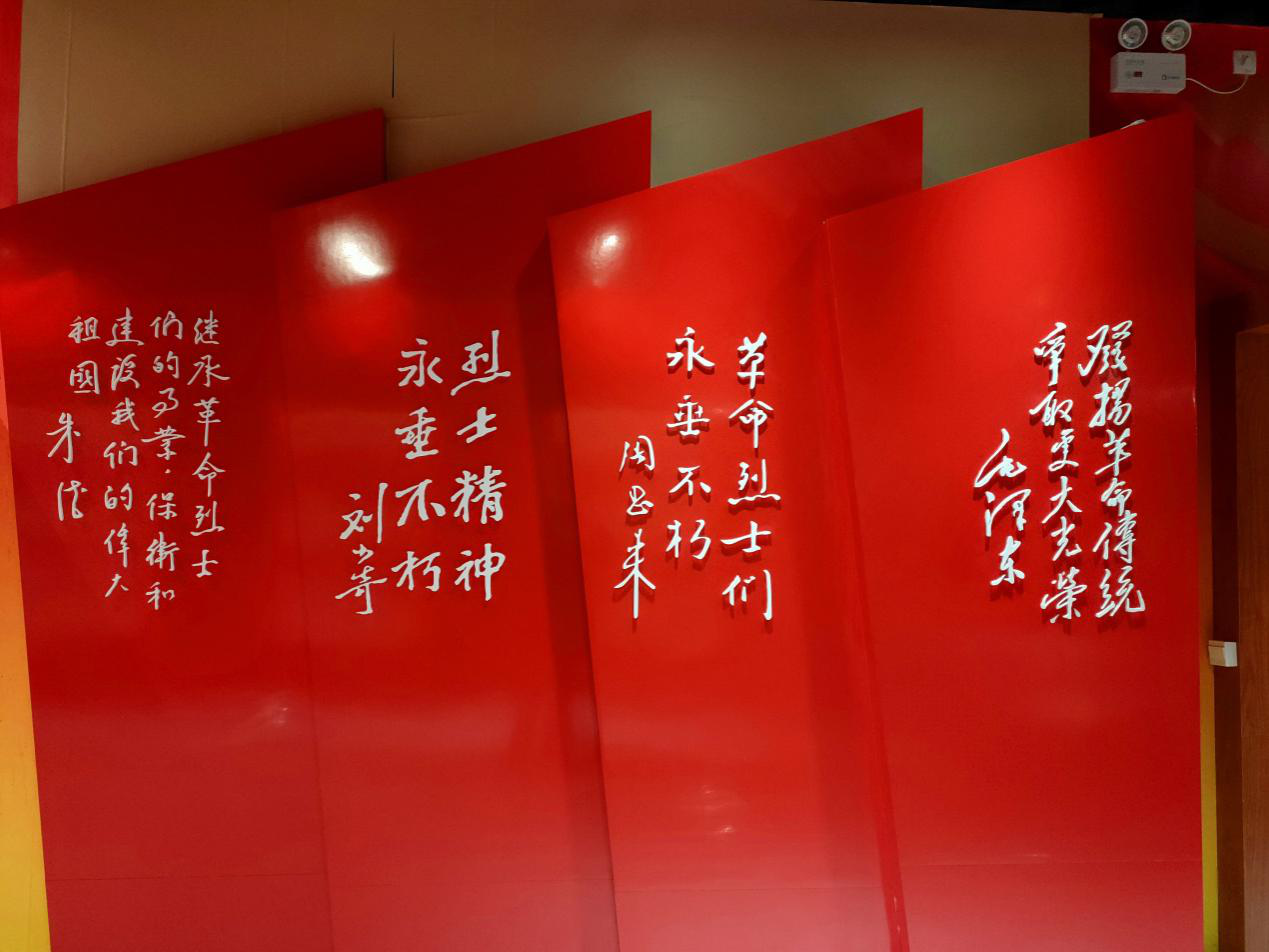 發揚革命傳統
爭取更大光榮
毛澤东
革命烈士们
永垂不朽
周恩来
烈士精神
永垂不朽
刘少奇
继承革命烈士
们的事業·保衛和
建設我们的偉大
祖國
朱德